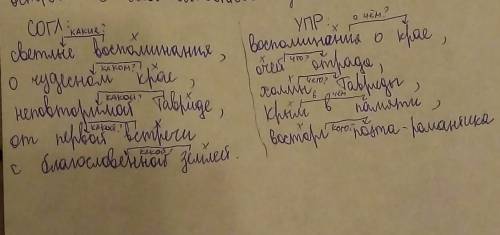 СОГЛ:
какие?
светлые воспоминания,
каком?
о чудесном крае,
какой?
неповторимой Тавриде,
какой?
от первой встречи
какой?
с благословенной землей.
УПР:
о чём?
воспоминания о крае,
что?
очей отрада,
чего?
холмы Тавриды,
в чём
Крым в памяти,
кого?
восторг поэта-романтика